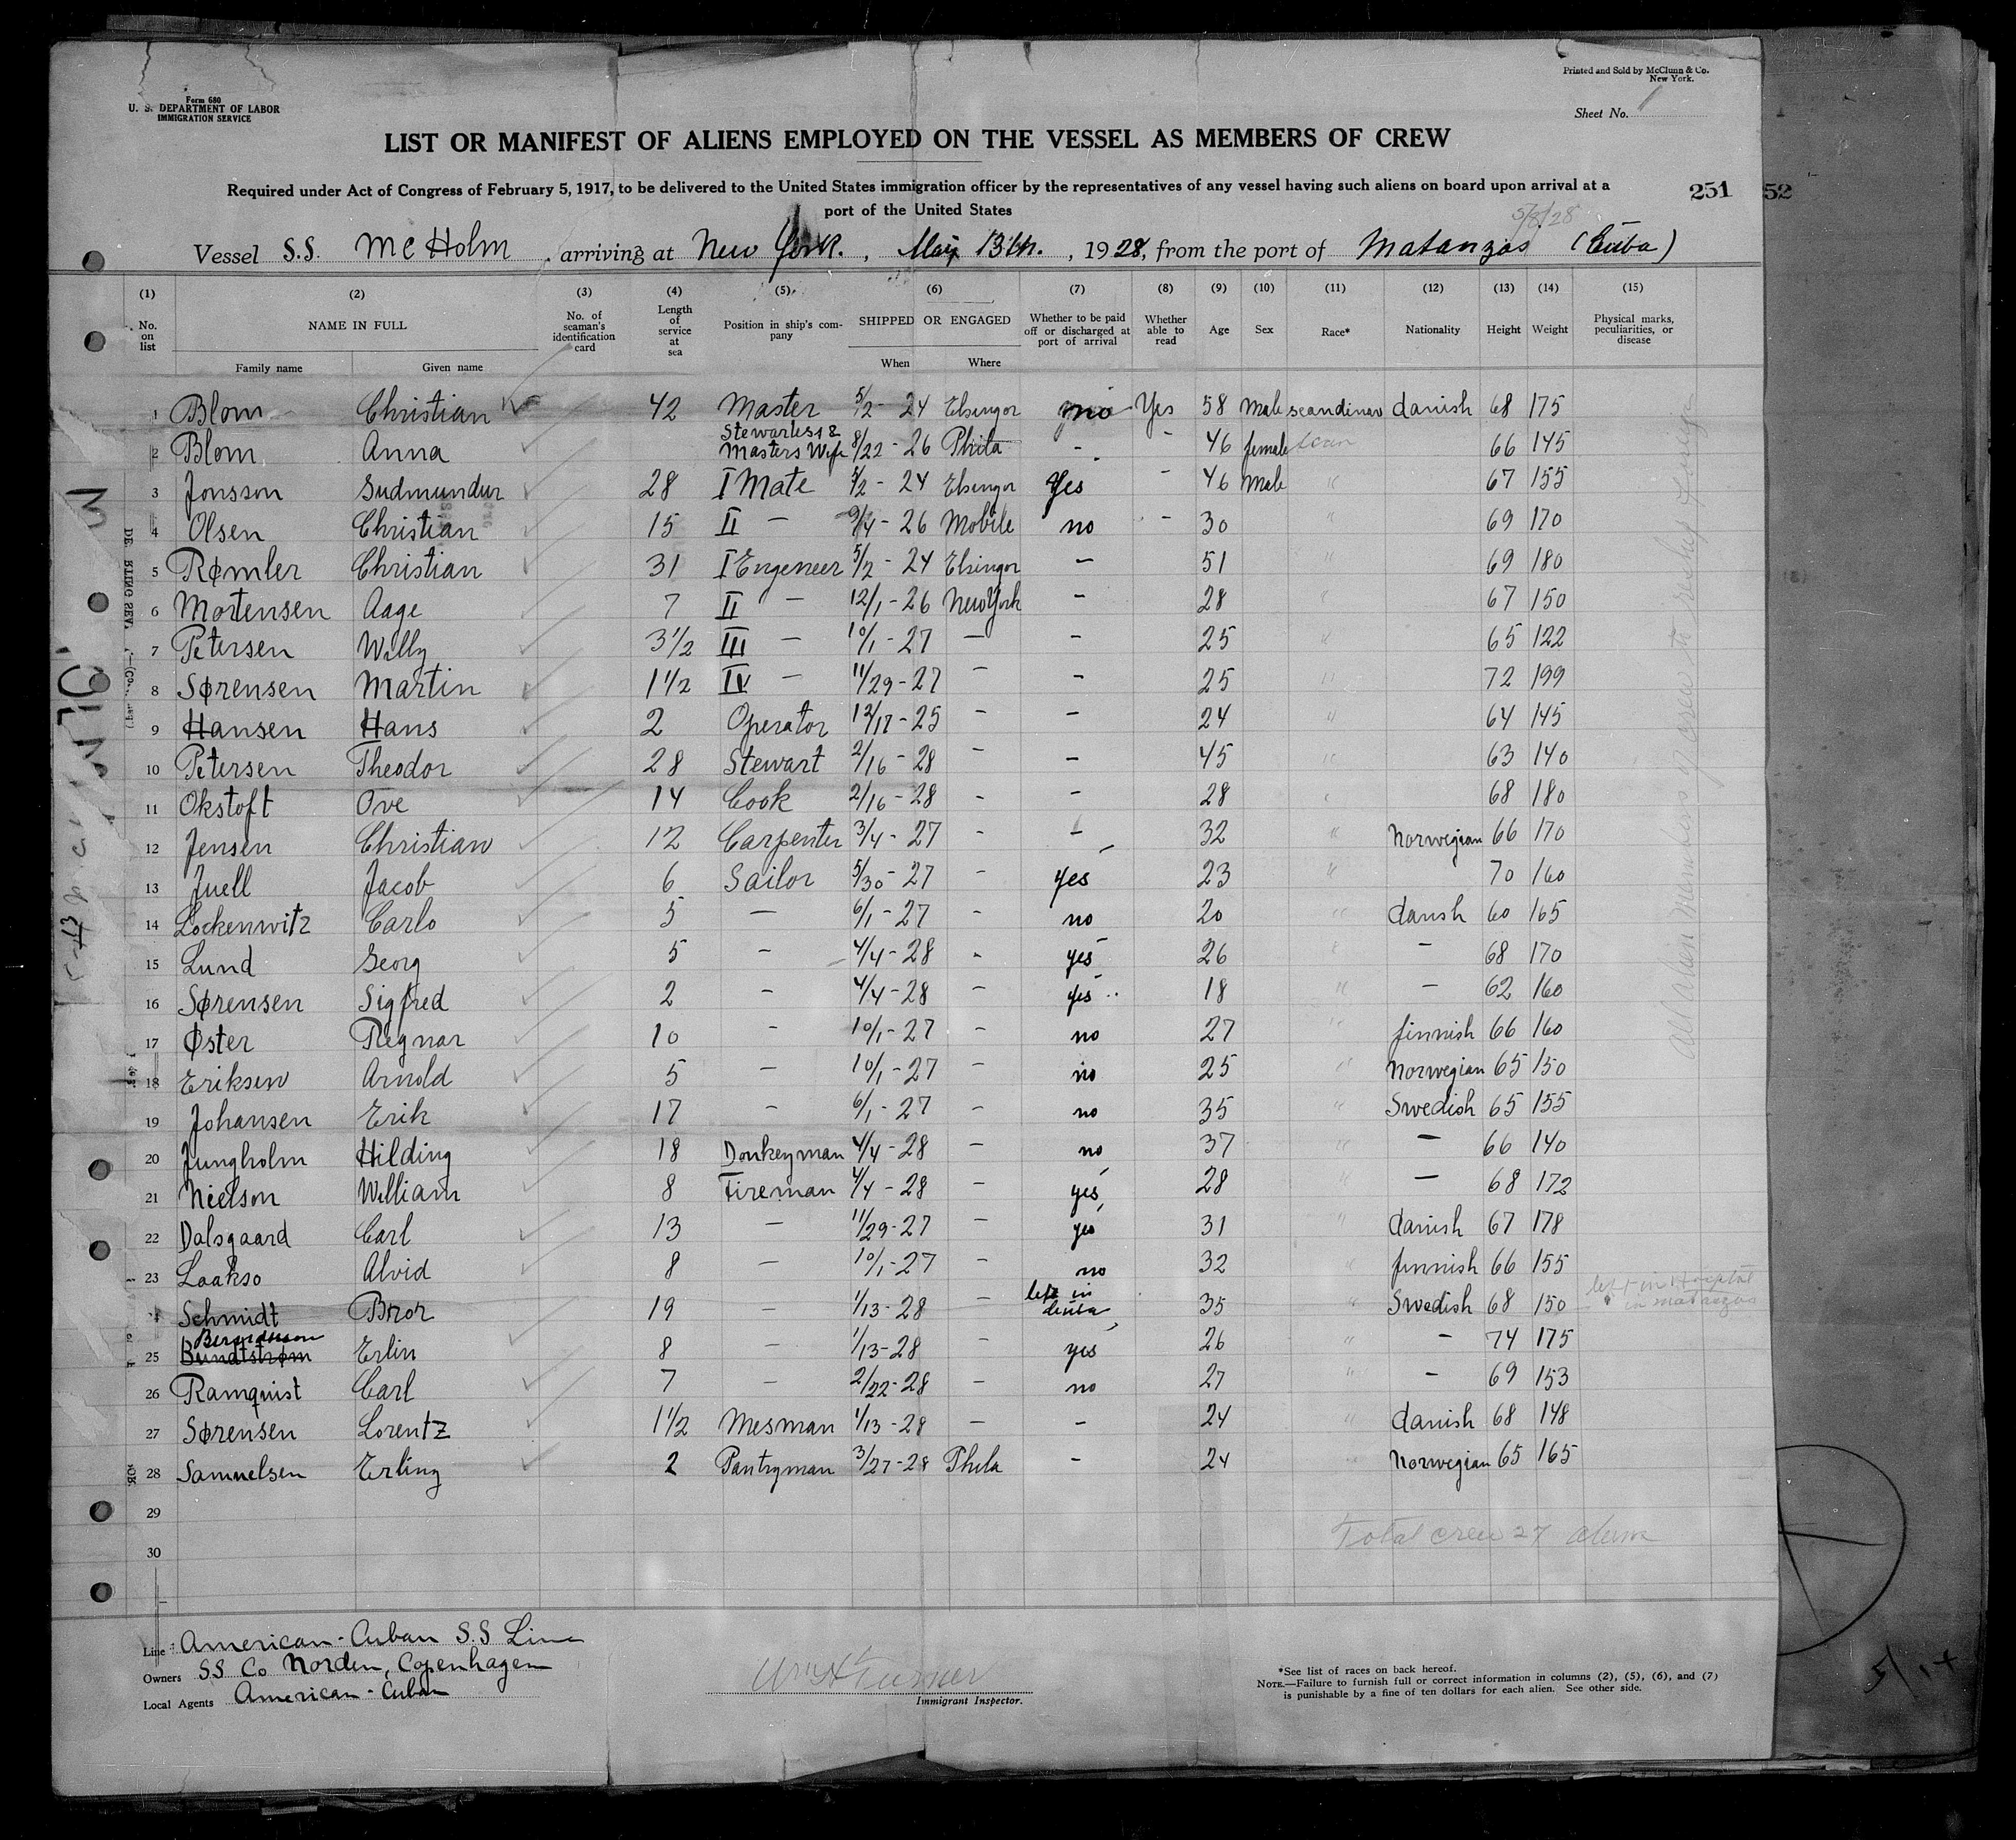 Printed and Sold by McClunn & Co.
New York.
Form 680
U. S. DEPARTMENT OF LABOR
IMMIGRATION SERVICE
Sheet No. 1
LIST OR MANIFEST OF ALIENS EMPLOYED ON THE VESSEL AS MEMBERS OF CREW
Required under Act of Congress of February 5, 1917, to be delivered to the United States immigration officer by the representatives of any vessel having such aliens on board upon arrival at a
port of the United States
251
52
Vessel S.S. McHolm, arriving at New York., May 13th., 1928, from the port of Matanzas (Cuba)
(1) (2) (3) (4) (5) (6) (7) (8) (9) (10) (11) (12) (13) (14) (15)
No. on list NAME IN FULL Family name Given name No. of seaman's identification card Length of service at sea Position in ship's company SHIPPED OR ENGAGED When Where Whether to be paid off or discharged at port of arrival Whether able to read Age Sex Race* Nationality Height Weight Physical marks, peculiarities, or disease
1 Blom Christian 42 Master 5/2 - 24 Elsingor no Yes 58 Male scandinav danish 68 175
2 Blom Anna Stewardess & Masters Wife 8/22 - 26 Phila - - 46 female scan 66 145
3 Jonsson Gudmundur 28 I Mate 5/2 - 24 Elsingor Yes - 46 Male " 67 155
4 Olsen Christian 15 II - 9/4 - 26 Mobile no - 30 " 69 170
5 Rømler Christian 31 I Engeneer 5/2 - 24 Elsingor - 51 " 69 180
6 Mortensen Aage 7 II - 12/1 - 26 New York - 28 " 67 150
7 Petersen Willy 3 1/2 III - 10/1 - 27 - - 25 " 65 122
8 Sørensen Martin 1 1/2 IV - 11/29 - 27 - - 25 " 72 199
9 Hansen Hans 2 Operator 12/17 - 25 - - 24 " 64 145
10 Petersen Theodor 28 Stewart 2/16 - 28 - - 45 " 63 140
11 Okstoft Ove 14 Cook 2/16 - 28 - - 28 " 68 180
12 Jensen Christian 12 Carpenter 3/4 - 27 - - 32 " Norwegian 66 170
13 Juell Jacob 6 Sailor 5/30 - 27 - yes 23 " 70 160
14 Lockenwitz Carlo 5 - 6/1 - 27 - no 20 " danish 60 165
15 Lund Georg 5 - 4/4 - 28 - yes 26 " - 68 170
16 Sørensen Sigfred 2 - 4/4 - 28 - yes 18 " - 62 160
17 Øster Regnar 10 - 10/1 - 27 - no 27 " finnish 66 160
18 Eriksen Arnold 5 - 10/1 - 27 - no 25 " Norwegian 65 150
19 Johansen Erik 17 - 6/1 - 27 - no 35 " Swedish 65 155
20 Jungholm Hilding 18 Donkeyman 4/4 - 28 - no 37 " - 66 140
21 Nielson William 8 Fireman 4/4 - 28 - yes 28 " - 68 172
22 Dalsgaard Carl 13 - 11/29 - 27 - yes 31 " danish 67 178
23 Laakso Alvid 8 - 10/1 - 27 - no 32 " finnish 66 155
Schmidt Bror 19 - 1/13 - 28 - left in Cuba 35 " Swedish 68 150 left in Hospital in Matanzas
25 Bundtstrøm Erlin 8 - 1/13 - 28 - yes 26 " - 74 175
26 Ramquist Carl 7 - 2/22 - 28 - no 27 " - 69 153
27 Sørensen Lorentz 1 1/2 Mesman 1/13 - 28 - - 24 " danish 68 148
28 Samuelsen Erling 2 Pantryman 3/27 - 28 Phila - 24 " Norwegian 65 165
29
30
All alien members of crew to reship foreign
Total crew 27 aliens
Line American-Cuban S.S Line
Owners SS Co Norden, Copenhagen
Local Agents American-Cuban
Turner
Immigrant Inspector.
*See list of races on back hereof.
NOTE.—Failure to furnish full or correct information in columns (2), (5), (6), and (7)
is punishable by a fine of ten dollars for each alien. See other side.
5/14